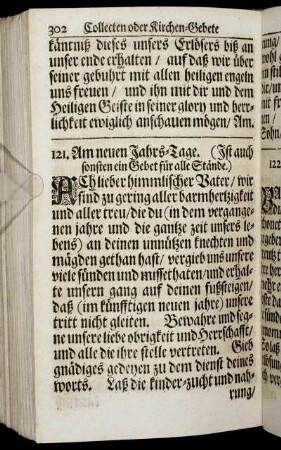 302 Collecten oder Kirchen-Gebete
käntniß dieses unsers Erlösers biß an
unser ende erhalten / auf daß wir über
seiner gebuhrt mit allen heiligen engeln
uns freuen / und ihn mit dir und dem
Heiligen Geiste in seiner glory und herr-
lichkeit ewiglich anschauen mögen / Am.
121. Am neuen Jahrs-Tage. (Ist auch
sonsten ein Gebet für alle Stände.)
ACh lieber himmlischer Vater / wir
sind zu gering aller barmhertzigkeit
und aller treu / die du (in dem vergange-
nen jahre und die gantze zeit unsers le-
bens) an deinen unnützen knechten und
mägden gethan hast / vergieb uns unsere
viele sünden und missethaten / und erhal-
te unsern gang auf deinen fußsteigen /
daß (im künfftigen neuen jahre) unsere
tritt nicht gleiten. Bewahre und seg-
ne unsere liebe obrigkeit und Herrschafft /
und alle die ihre stelle vertreten. Gieb
gnädiges gedeyen zu dem dienst deines
worts. Laß die kinder-zucht und nah-
rung /